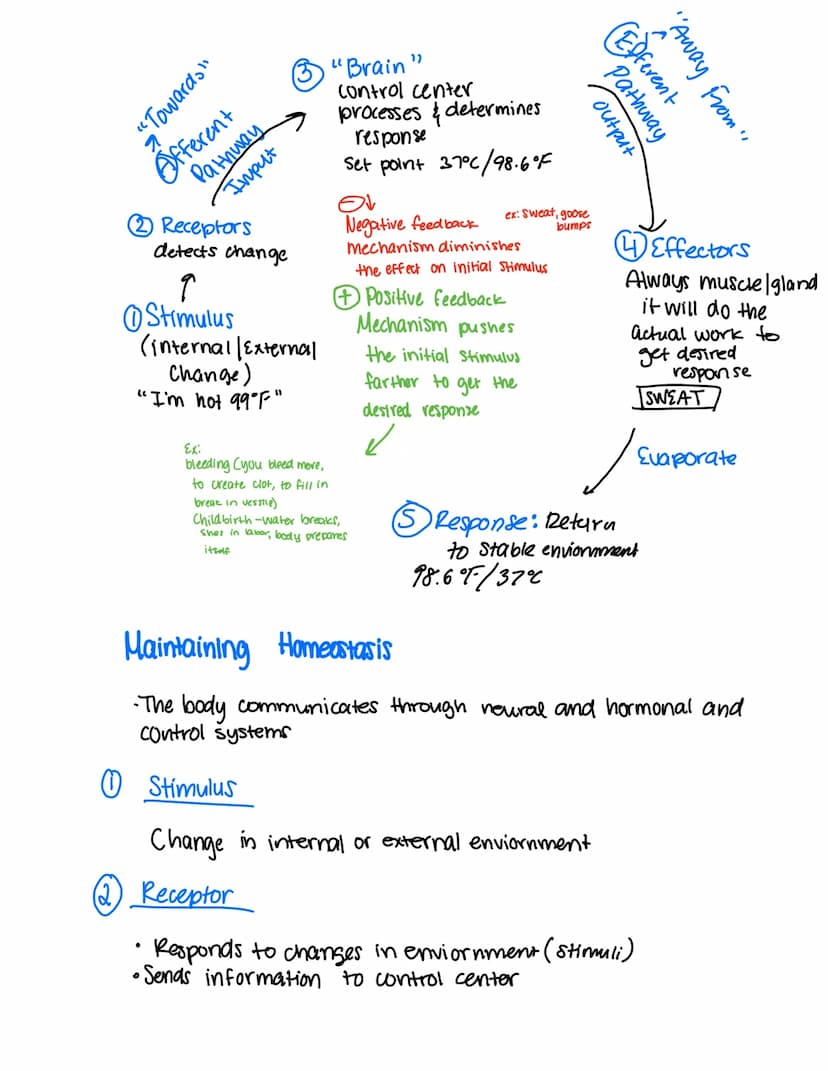 "Towards"
Afferent
Pathway
Input
③ "Brain"
control center
processes & determines
response
Set point 37°C/98.6°F
Efferent → "Away From"
Pathway
output
② Receptors
detects change
① Stimulus
(internal|External
Change)
"I'm not 99°F"
⊖↓
Negative feedback
ex: sweat, goose
bumps
Mechanism diminishes
the effect on initial stimulus
⊕ Positive feedback
Mechanism pushes
the initial stimulus
farther to get the
desired response
Ex:
bleeding (you bleed more,
to create clot, to fill in
break in vessel)
Childbirth - water breaks,
shes in labor, body prepares
itself
④ Effectors
Always muscle|gland
it will do the
actual work to
get desired
response
SWEAT
Evaporate
⑤ Response: Return
to stable enviornment
98.6°F/37°C
Maintaining Homeostasis
· The body communicates through neural and hormonal and
control systems
① Stimulus
Change in internal or external enviornment
② Receptor
• Responds to changes in enviornment (stimuli)
• Sends information to control center